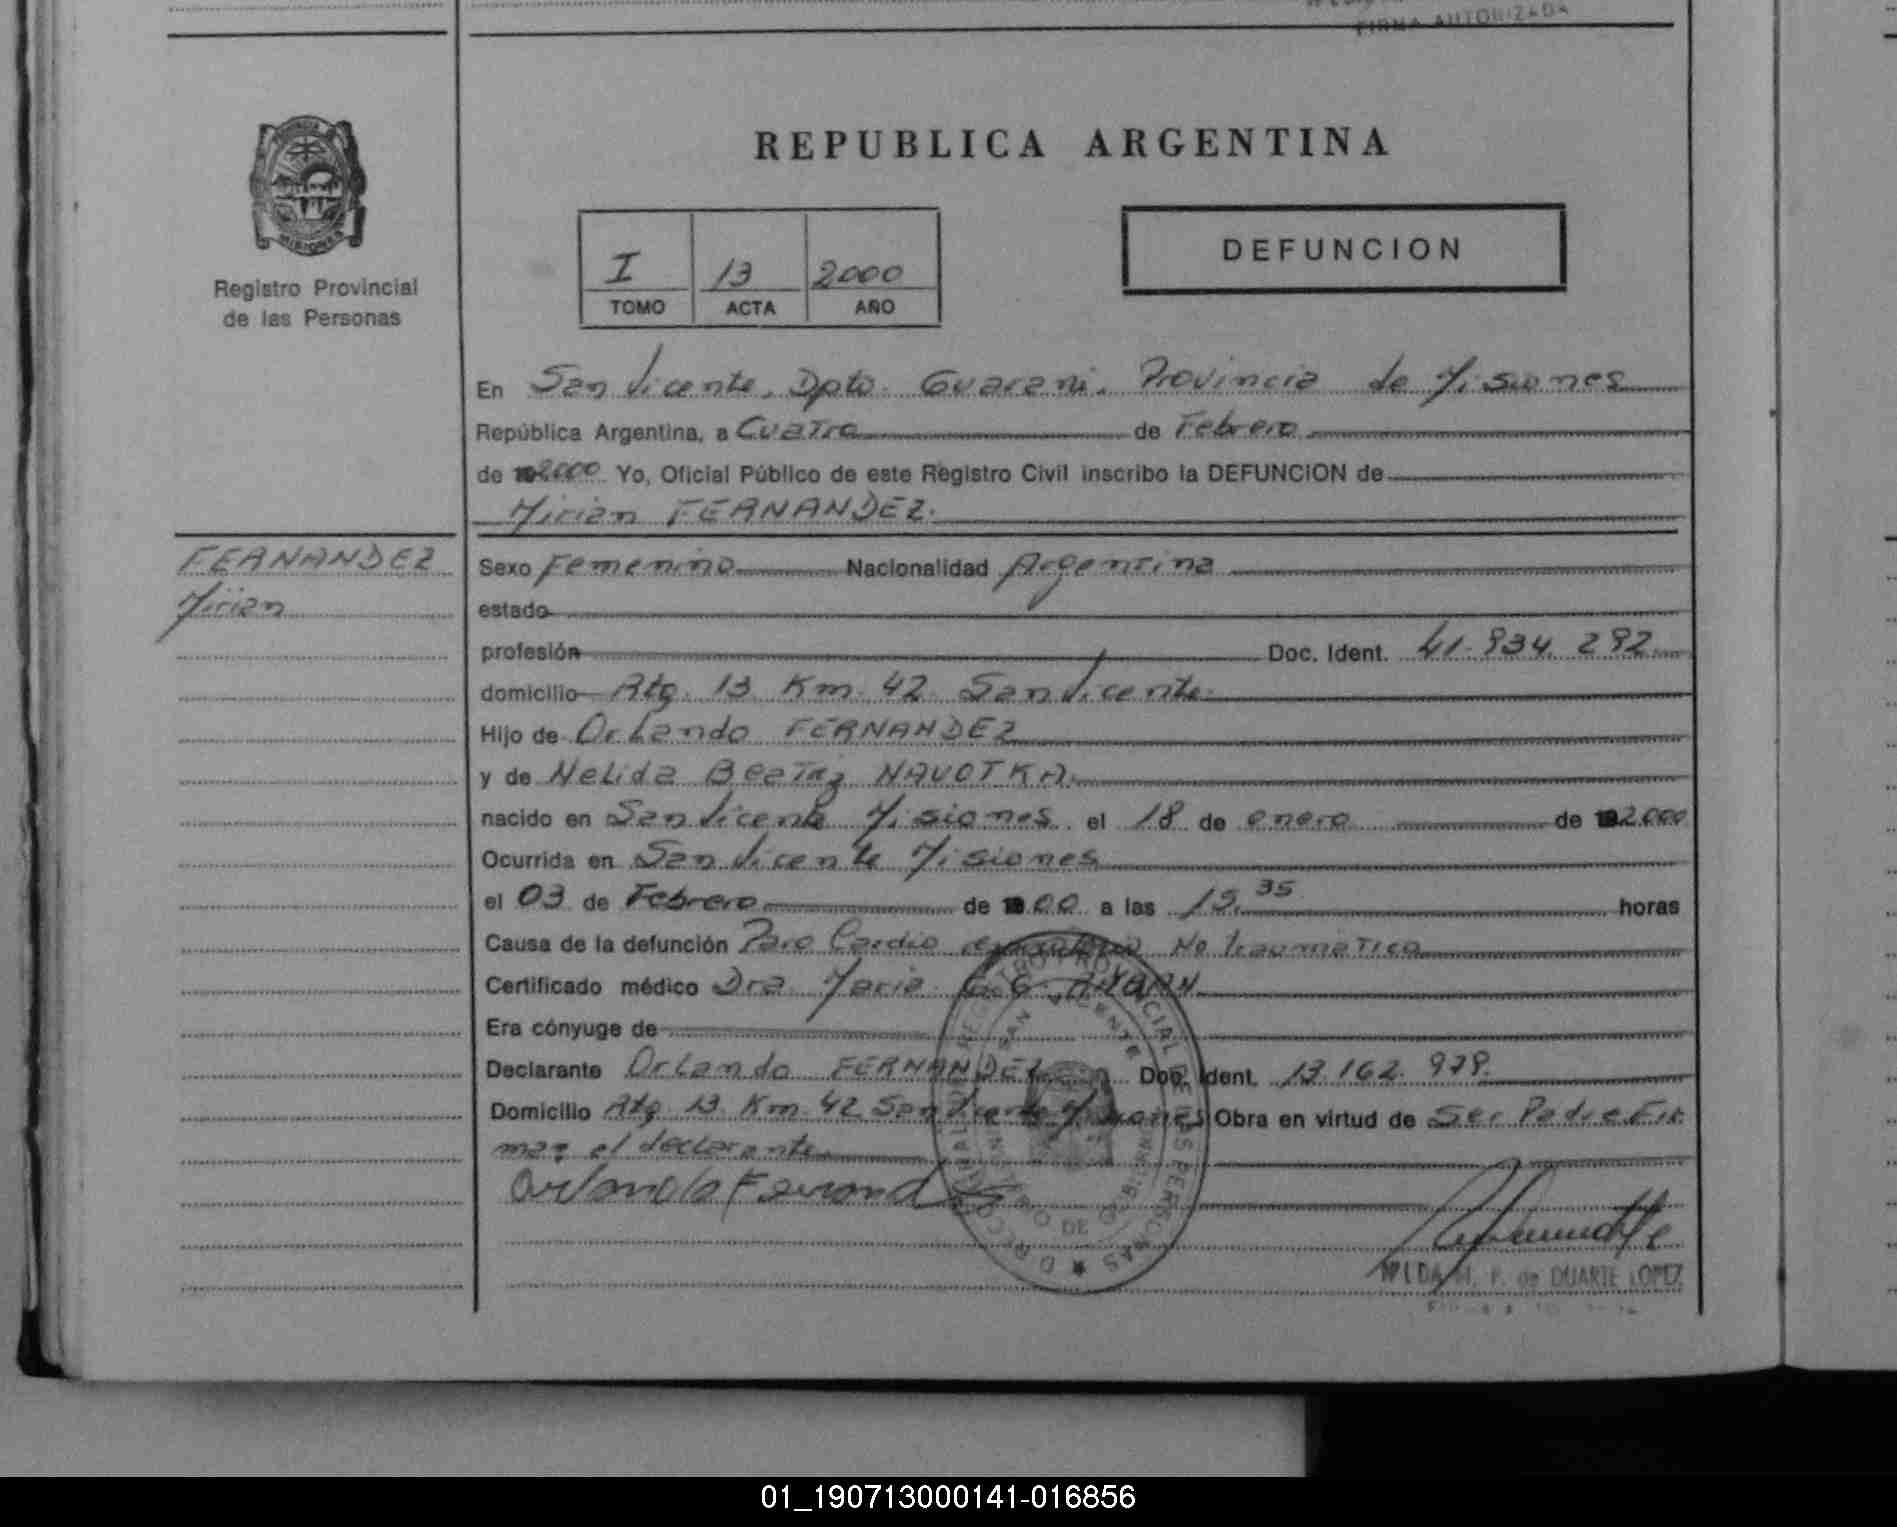 FIRMA AUTORIZADA
PROVINCIA DE
MISIONES
Registro Provincial
de las Personas
REPUBLICA ARGENTINA
I 13 2000
TOMO ACTA AÑO
DEFUNCION
En San Vicente, Dpto. Guarani. Provincia de Misiones
República Argentina, a Cuatro de Febrero
de 2000 Yo, Oficial Público de este Registro Civil inscribo la DEFUNCION de
Mirian FERNANDEZ.
FERNANDEZ
Mirian
Sexo Femenino Nacionalidad Argentina
estado
profesión Doc. Ident. 41.934.292
domicilio Ptg. 13 Km. 42 San Vicente.
Hijo de Orlando FERNANDEZ
y de Nelida Beatriz NAVOTKA.
nacido en San Vicente Misiones el 18 de enero de 2000
Ocurrida en San Vicente Misiones
el 03 de Febrero de 00 a las 15.35 horas
Causa de la defunción Paro Cardio respiratorio No traumatico
Certificado médico Dra. Maria G.G.
Era cónyuge de
Declarante Orlando FERNANDEZ Doc. Ident. 13.162.979.
Domicilio Ptg 13 Km 42 San Vicente Misiones Obra en virtud de Ser Padre Fir
maz el declarante
Orlando Fernandez
DIRECCION REGISTRO PROVINCIAL DE LAS PERSONAS
SAN VICENTE
MINISTERIO DE GOBIERNO
M. P. de DUARTE LOPEZ
01_190713000141-016856